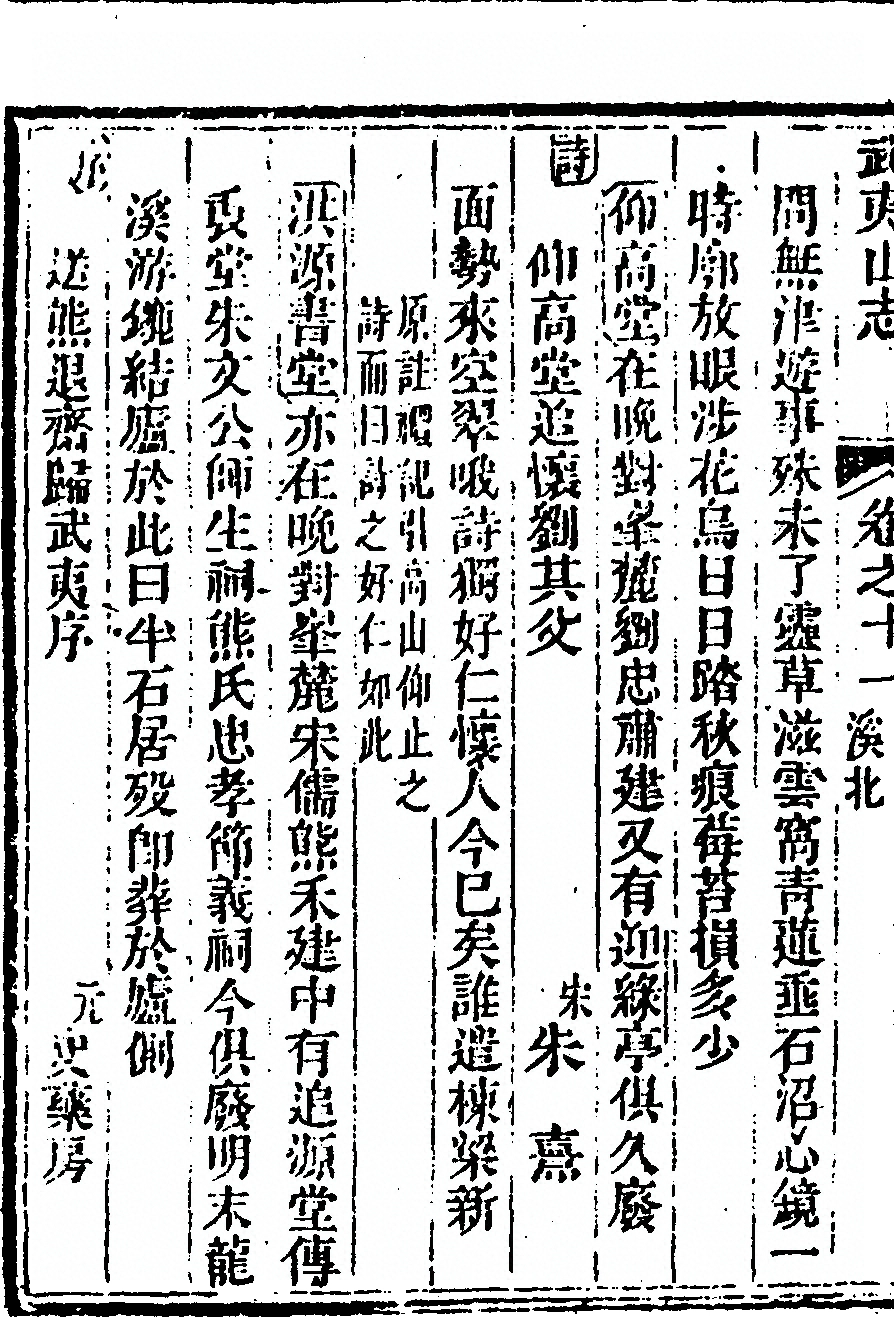 武夷山志 卷之十一 溪北
問無津遊事殊未了靈草滋雲窩青蓮垂石沼心鏡一
時廓放眼涉花鳥日日踏秋痕莓苔損多少
仰高堂在晚對峯麓劉忠肅建又有迎綠亭俱久廢
詩 仰高堂追懷劉其父 宋 朱熹
面勢來空翠哦詩獨好仁懷人今已矣誰遣棟梁新
原註禮記引高山仰止之
詩而曰詩之好仁如此
洪源書堂亦在晚對峯麓宋儒熊禾建中有追源堂傳
心堂朱文公師生祠熊氏忠孝節義祠今俱廢明末龍
溪游 結廬於此曰半石居歿即葬於廬側
送熊退齋歸武夷序 元 史藥房